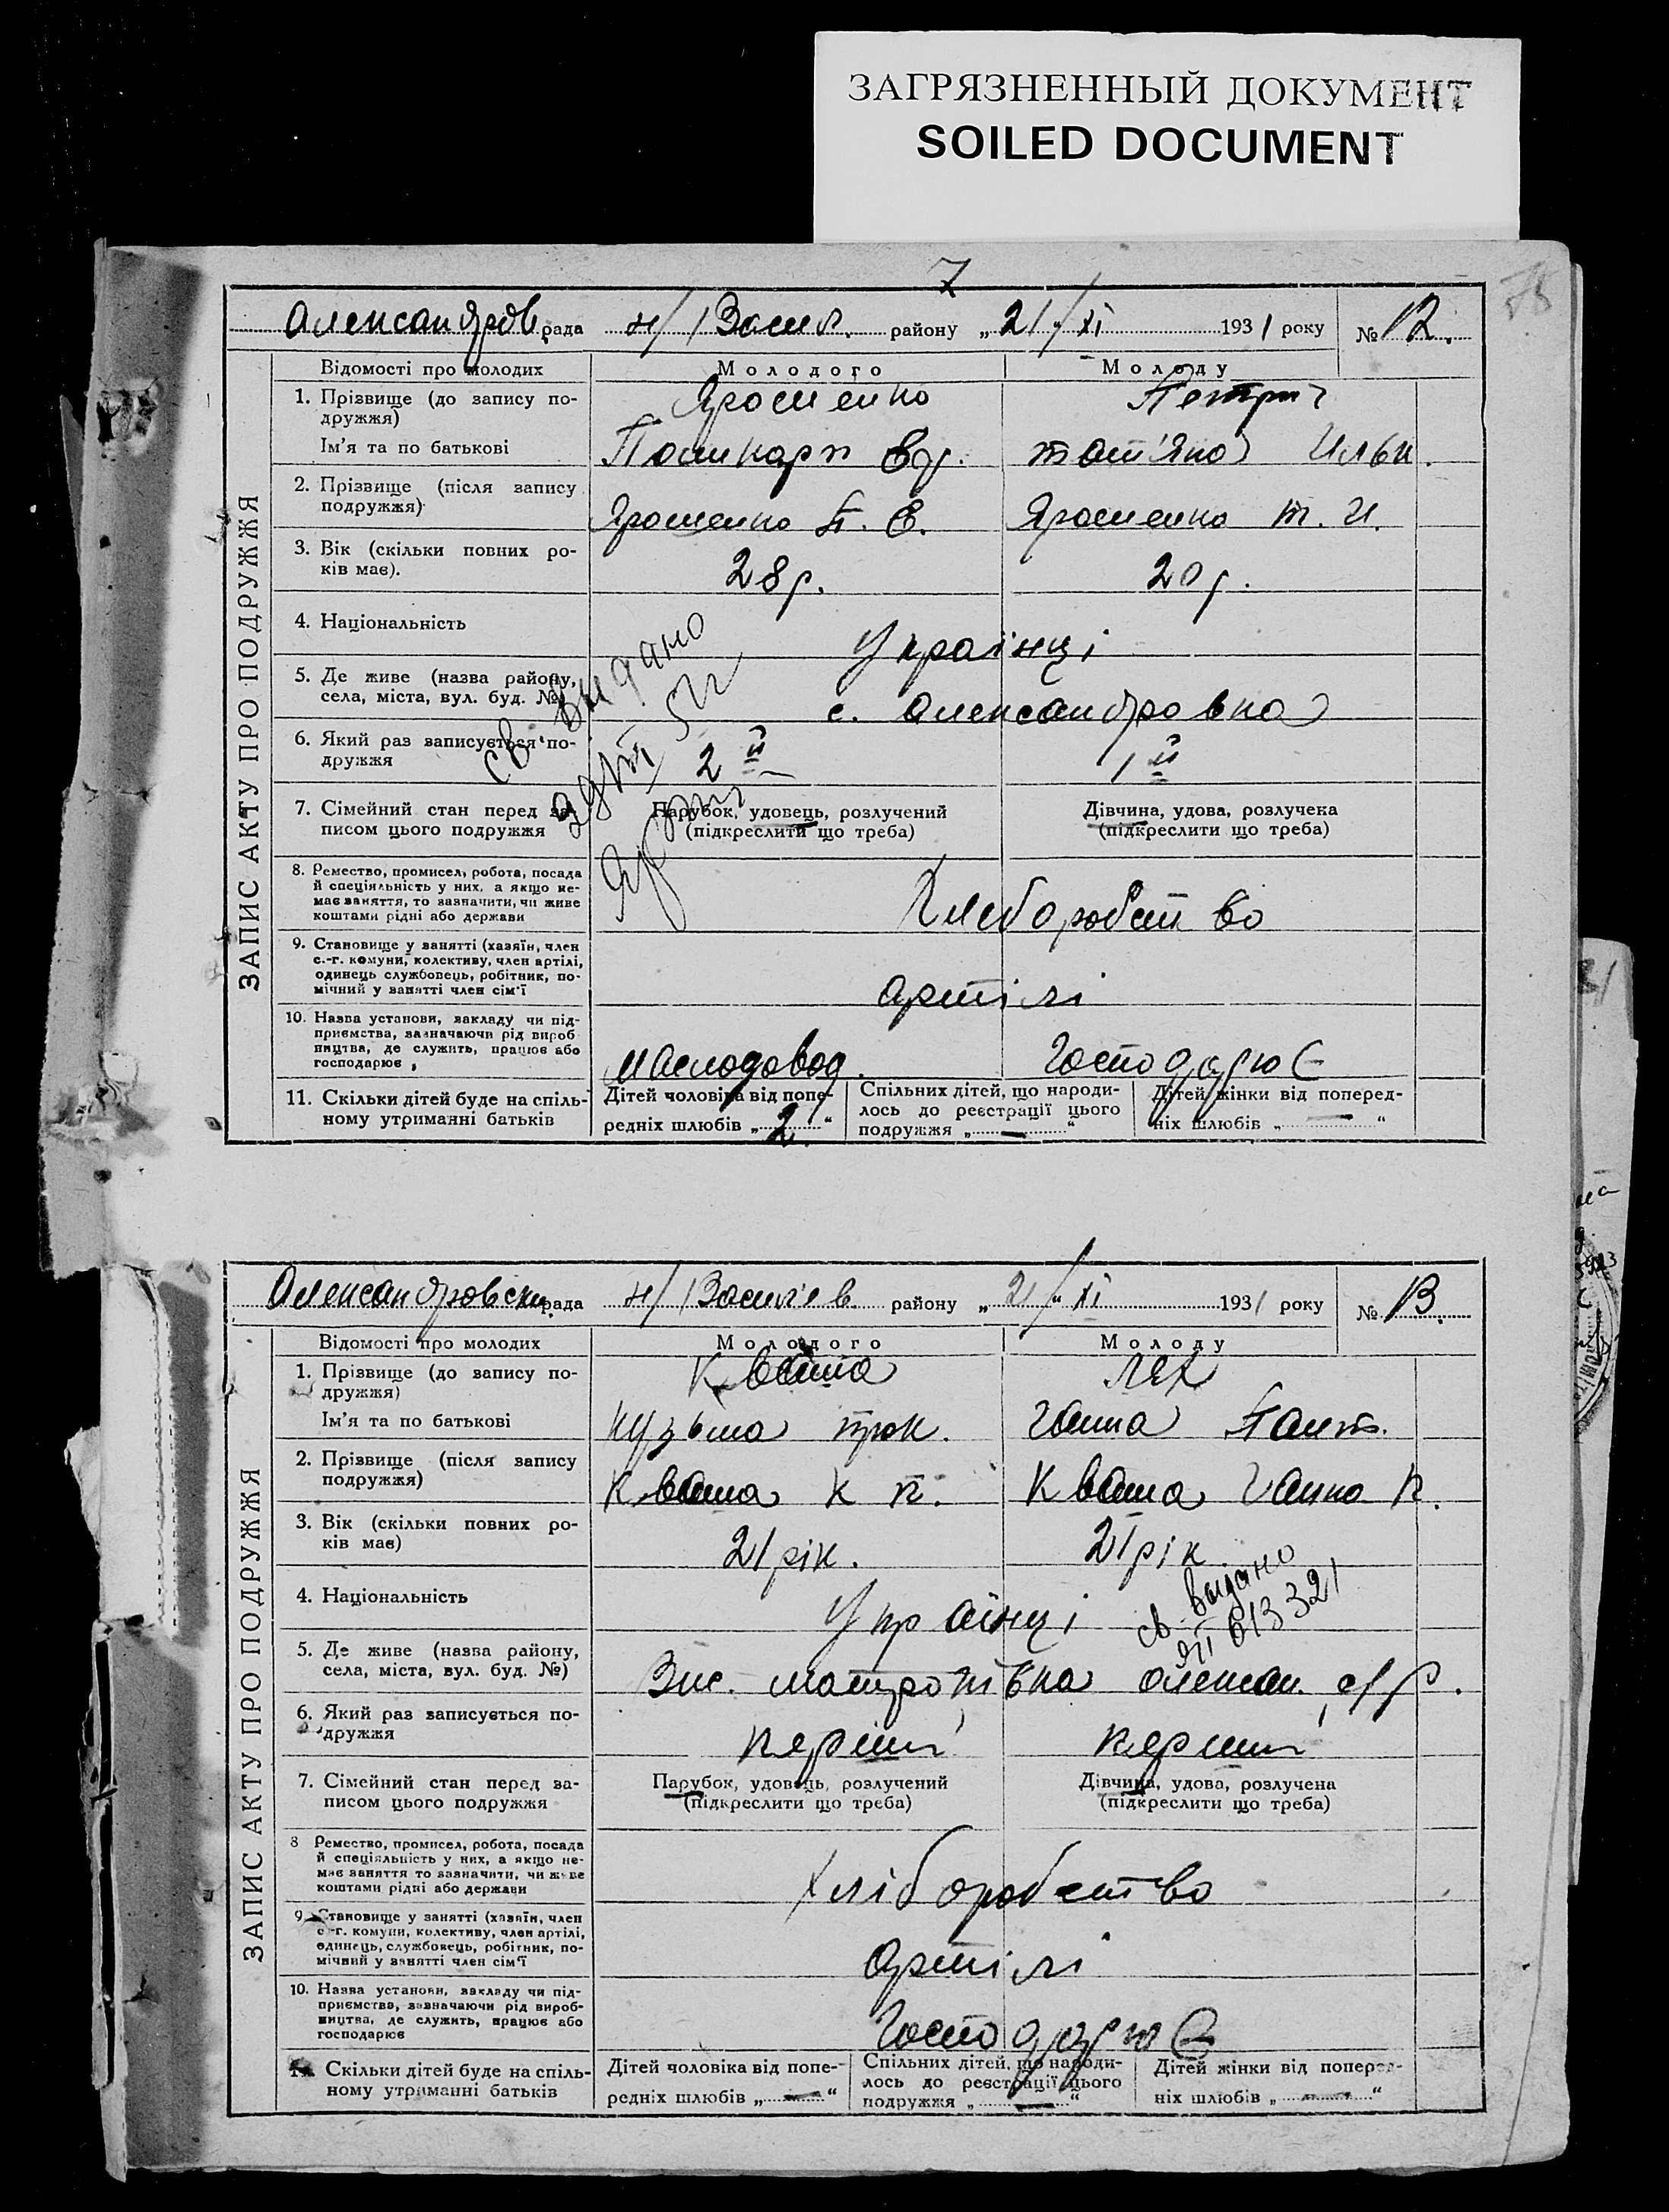 ЗАГРЯЗНЕННЫЙ ДОКУМЕНТ
SOILED DOCUMENT
7
Александров. рада н/Васил. району „21/XI 1931 року № 12.
ЗАПИС АКТУ ПРО ПОДРУЖЖЯ
Відомості про молодих Молодого Молоду
1. Прізвище (до запису по-
дружжя) Ярошенко Петрич
Ім'я та по батькові Поликарп Евд. Тат'яна Ильк.
2. Прізвище (після запису
подружжя) Ярошенко П. Е. Ярошенко Т. И.
3. Вік (скільки повних ро-
ків має). 28 р. 20 р.
4. Національність Українці
5. Де живе (назва району,
села, міста, вул. буд. №) с. Александровка
6. Який раз записується по-
дружжя 2й 1й
св. выдано
7. Сімейний стан перед за-
писом цього подружжя
Парубок, удовець, розлучений
(підкреслити що треба)
Дівчина, удова, розлучека
(підкреслити що треба)
8. Ремество, промисел, робота, посада
й спеціяльність у них, а якщо не-
має заняття, то зазначити, чи живе
коштами рідні або держави
Хлеборобство
9. Становище у занятті (хазяїн, член
с.-г. комуни, колективу, член артілі,
одинець службовець, робітник, по-
мічний у занятті член сім'ї
артілі
10. Назва установи, закладу чи під-
приємства, зазначаючи рід вироб
ництва, де служить, працює або
господарює
Маслодовод. Господарює
11. Скільки дітей буде на спіль-
ному утриманні батьків
Дітей чоловіка від попе-
редніх шлюбів „2“
Спільних дітей, що народи-
лось до реєстрації цього
подружжя „—“
Дітей жінки від поперед-
ніх шлюбів „—“
Александровски рада н/Василів. району „21/“ XI 1931 року № 13.
ЗАПИС АКТУ ПРО ПОДРУЖЖЯ
Відомості про молодих Молодого Молоду
1. Прізвище (до запису по-
дружжя) Кваша Лях
Ім'я та по батькові Кузьма Прок. Ганна Пант.
2. Прізвище (після запису
подружжя) Кваша К П. Кваша Ганна П.
3. Вік (скільки повних ро-
ків має) 21 рік. 21 рік.
св. выдано
ЯП 613321
4. Національність Українці
5. Де живе (назва району,
села, міста, вул. буд. №) Матронівка Олексан. с/р.
6. Який раз записується по-
дружжя перший перший
7. Сімейний стан перед за-
писом цього подружжя
Парубок, удовець, розлучений
(підкреслити що треба)
Дівчина, удова, розлучена
(підкреслити що треба)
8 Ремество, промисел, робота, посада
й спеціяльність у них, а якщо не-
має заняття то зазначити, чи живе
коштами рідні або держави
Хліборобство
9. Становище у занятті (хазяїн, член
с.-г. комуни, колективу, член артілі,
одинець, службовець, робітник, по-
мічний у занятті член сім'ї
Артілі
10. Назва установи, закладу чи під-
приємства, зазначаючи рід вироб-
ництва, де служить, працює або
господарює
Господарює
11. Скільки дітей буде на спіль-
ному утриманні батьків
Дітей чоловіка від попе-
редніх шлюбів „—“
Спільних дітей, що народи-
лось до реєстрації цього
подружжя „—“
Дітей жінки від поперед-
ніх шлюбів „—“